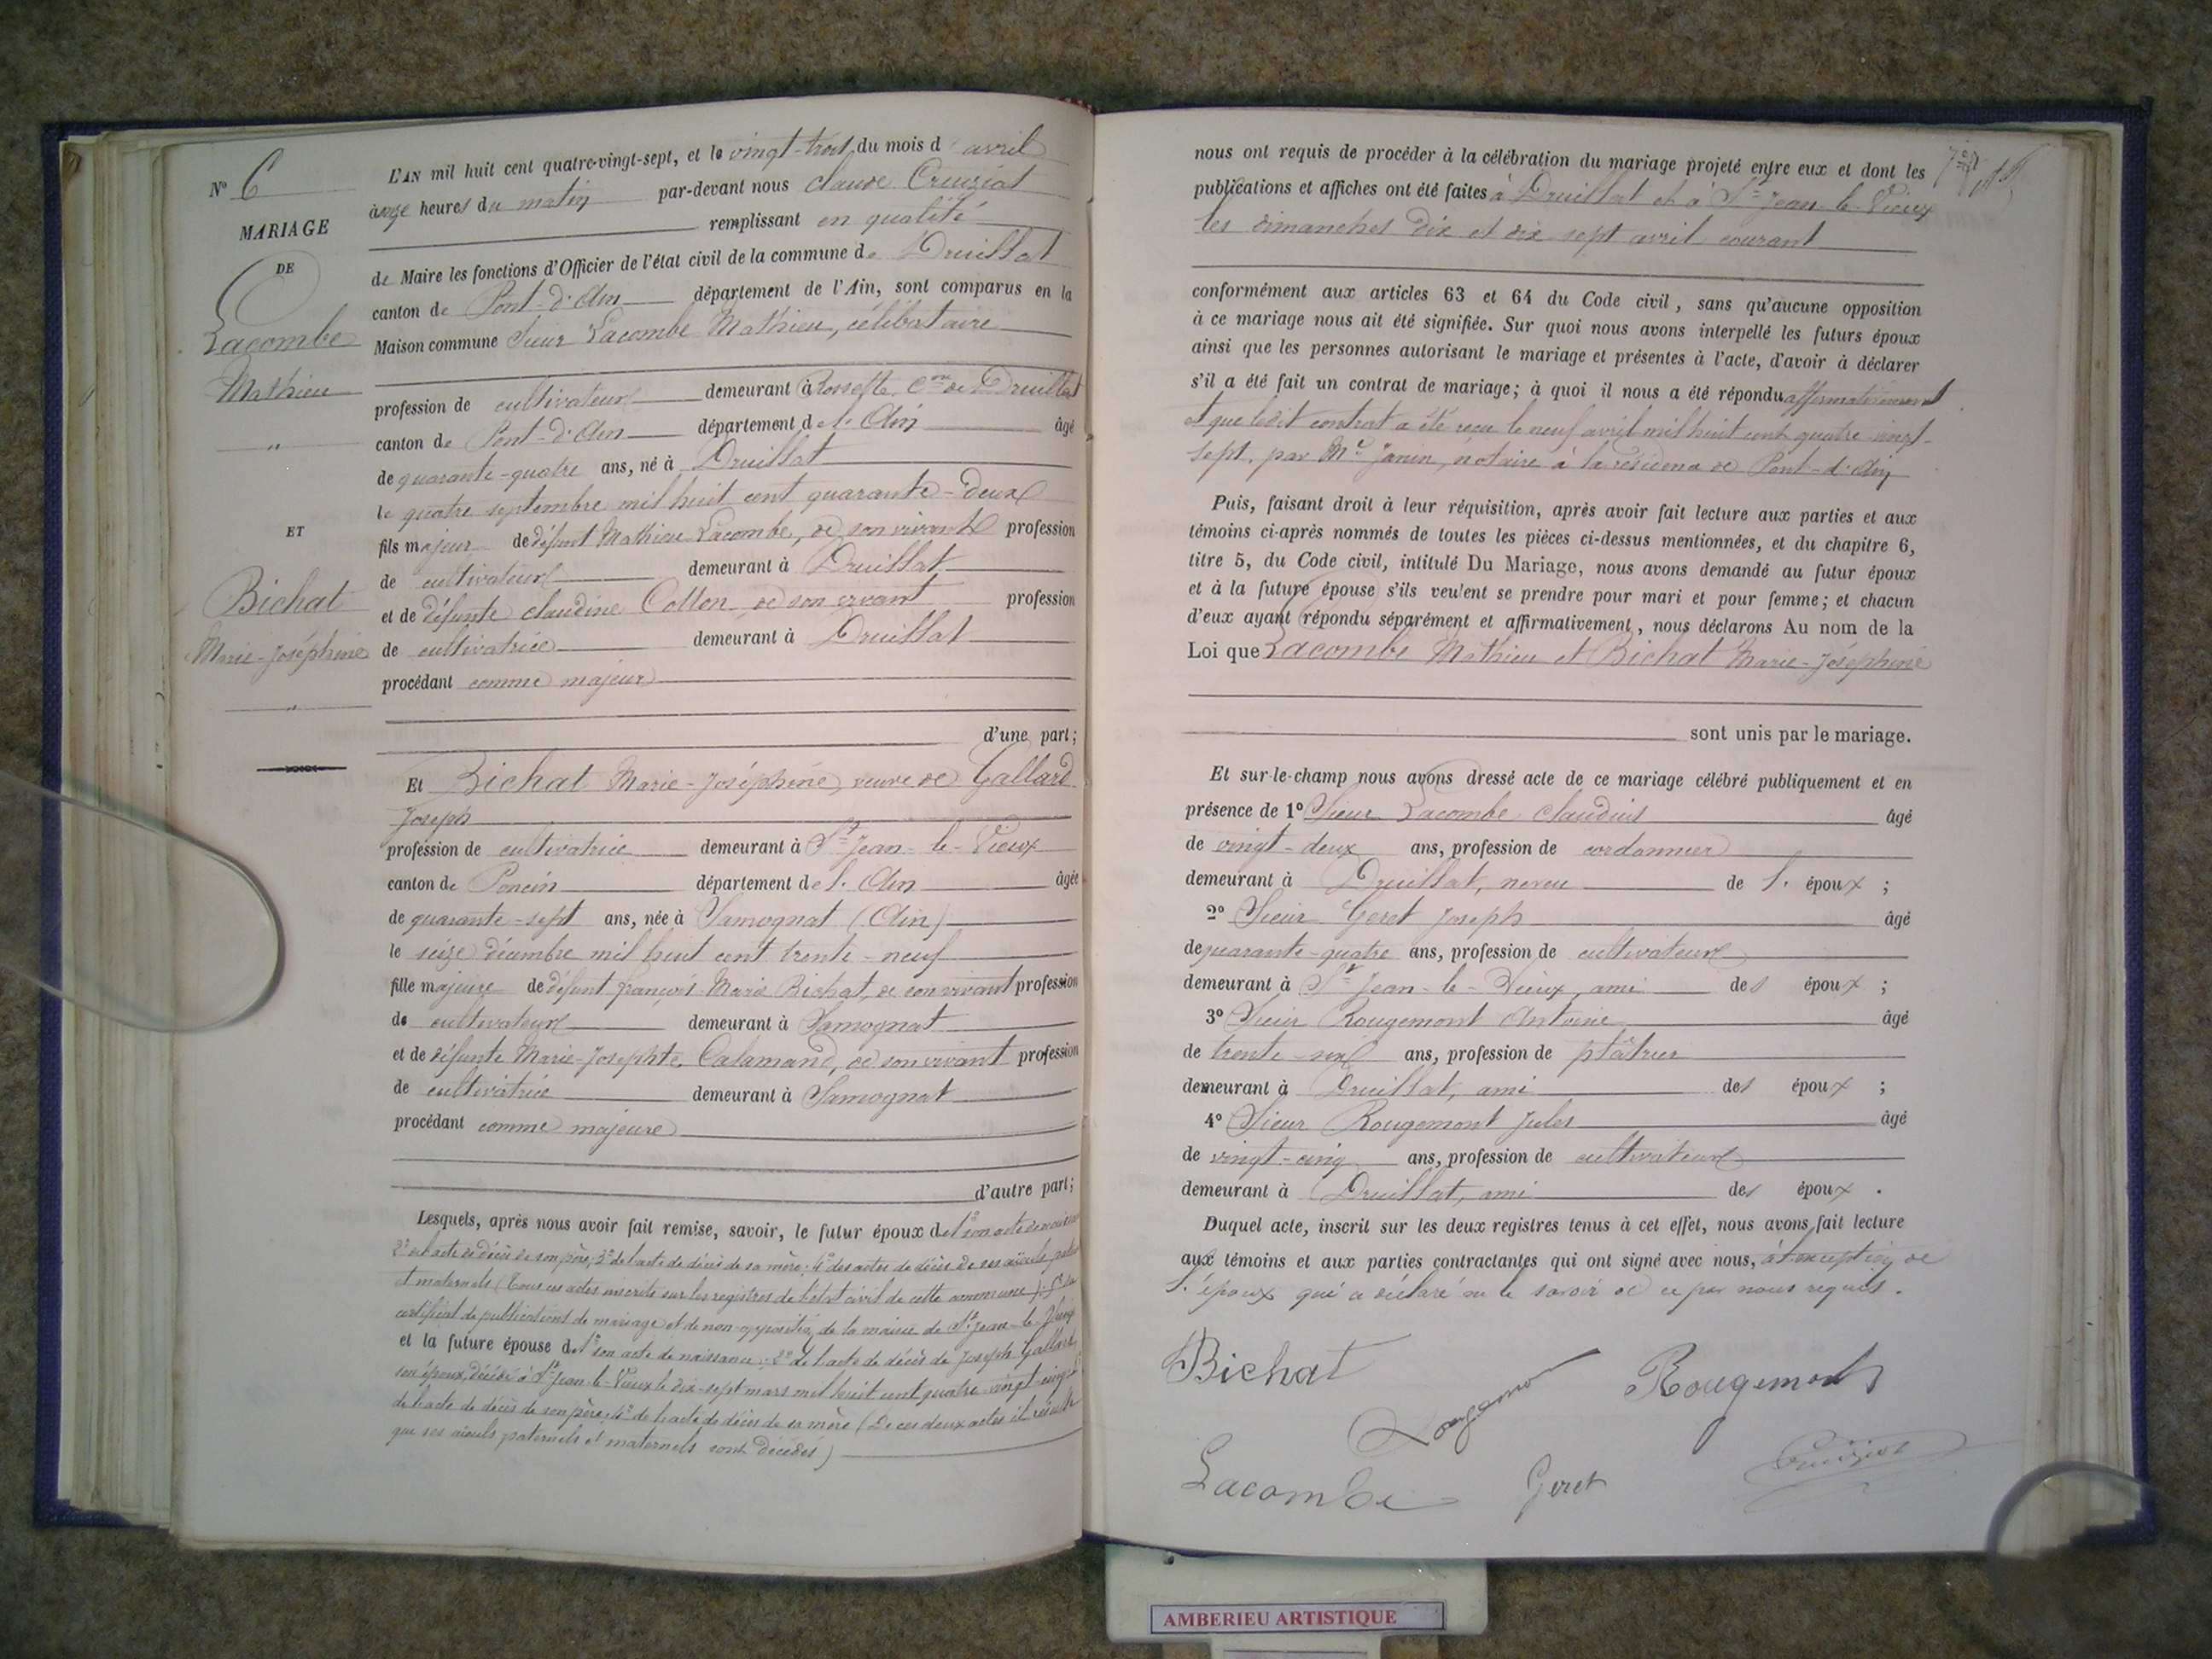 N° 6
MARIAGE
DE
Lacombe
Mathieu
"
ET
Bichat
Marie-Joséphine
"
L'AN mil huit cent quatre-vingt-sept, et le vingt-trois du mois d'avril
à onze heures du matin par-devant nous Claude Cruiziat
remplissant en qualité
de Maire les fonctions d'Officier de l'état civil de la commune de Druillat
canton de Pont-d'Ain département de l'Ain, sont comparus en la
Maison commune Sieur Lacombe Mathieu, célibataire
profession de cultivateur demeurant à Rossette Cne de Druillat
canton de Pont-d'Ain département de l'Ain âgé
de quarante-quatre ans, né à Druillat
le quatre septembre mil huit cent quarante-deux
fils majeur de défunt Mathieu Lacombe, de son vivant profession
de cultivateur demeurant à Druillat
et de défunte Claudine Collon de son vivant profession
de cultivatrice demeurant à Druillat
procédant comme majeur
d'une part;
Et Bichat Marie-Joséphine, veuve de Gallard
Joseph
profession de cultivatrice demeurant à St Jean-le-Vieux
canton de Poncin département de l'Ain âgée
de quarante-sept ans, née à Samognat (Ain)
le seize décembre mil huit cent trente-neuf
fille majeure de défunt François-Marie Bichat, de son vivant profession
de cultivateur demeurant à Samognat
et de défunte Marie-Josephte Calamand, de son vivant profession
de cultivatrice demeurant à Samognat
procédant comme majeure
d'autre part;
Lesquels, après nous avoir fait remise, savoir, le futur époux de 1° son acte de naissance
2° de l'acte de décès de son père; 3° de l'acte de décès de sa mère; 4° des actes de décès de ses aïeuls pater
et maternels (tous ces actes inscrits sur les registres de l'état civil de cette commune); 5° du
certificat de publications de mariage et de non-opposition de la mairie de St Jean-le-Vieux
et la future épouse de 1° son acte de naissance; 2° de l'acte de décès de Joseph Gallard
son époux, décédé à St Jean-le-Vieux le dix-sept mars mil huit cent quatre-vingt-cinq
de l'acte de décès de son père; 4° de l'acte de décès de sa mère (De ces deux actes il résulte
que ses aïeuls paternels et maternels sont décédés)
nous ont requis de procéder à la célébration du mariage projeté entre eux et dont les
publications et affiches ont été faites à Druillat et à St Jean-le-Vieux
les dimanches dix et dix-sept avril courant
conformément aux articles 63 et 64 du Code civil, sans qu'aucune opposition
à ce mariage nous ait été signifiée. Sur quoi nous avons interpellé les futurs époux
ainsi que les personnes autorisant le mariage et présentes à l'acte, d'avoir à déclarer
s'il a été fait un contrat de mariage; à quoi il nous a été répondu affirmativement
et que ledit contrat a été reçu le neuf avril mil huit cent quatre-vingt-
sept, par Me Janin, notaire à la résidence de Pont-d'Ain
Puis, faisant droit à leur réquisition, après avoir fait lecture aux parties et aux
témoins ci-après nommés de toutes les pièces ci-dessus mentionnées, et du chapitre 6,
titre 5, du Code civil, intitulé Du Mariage, nous avons demandé au futur époux
et à la future épouse s'ils veulent se prendre pour mari et pour femme; et chacun
d'eux ayant répondu séparément et affirmativement, nous déclarons Au nom de la
Loi que Lacombe Mathieu et Bichat Marie-Joséphine
sont unis par le mariage.
Et sur-le-champ nous avons dressé acte de ce mariage célébré publiquement et en
présence de 1° Sieur Lacombe Claudius âgé
de vingt-deux ans, profession de cordonnier
demeurant à Druillat, neveu de l'époux;
2° Sieur Geret Joseph âgé
de quarante-quatre ans, profession de cultivateur
demeurant à St Jean-le-Vieux, ami des époux;
3° Sieur Rougemont Antoine âgé
de trente-six ans, profession de plâtrier
demeurant à Druillat, ami des époux;
4° Sieur Rougemont Jules âgé
de vingt-cinq ans, profession de cultivateur
demeurant à Druillat, ami des époux.
Duquel acte, inscrit sur les deux registres tenus à cet effet, nous avons fait lecture
aux témoins et aux parties contractantes qui ont signé avec nous, à l'exception de
l'époux qui a déclaré ne le savoir de ce par nous requis.
Bichat
Rougemont
Lacombe
Geret
Cruiziat
AMBERIEU ARTISTIQUE